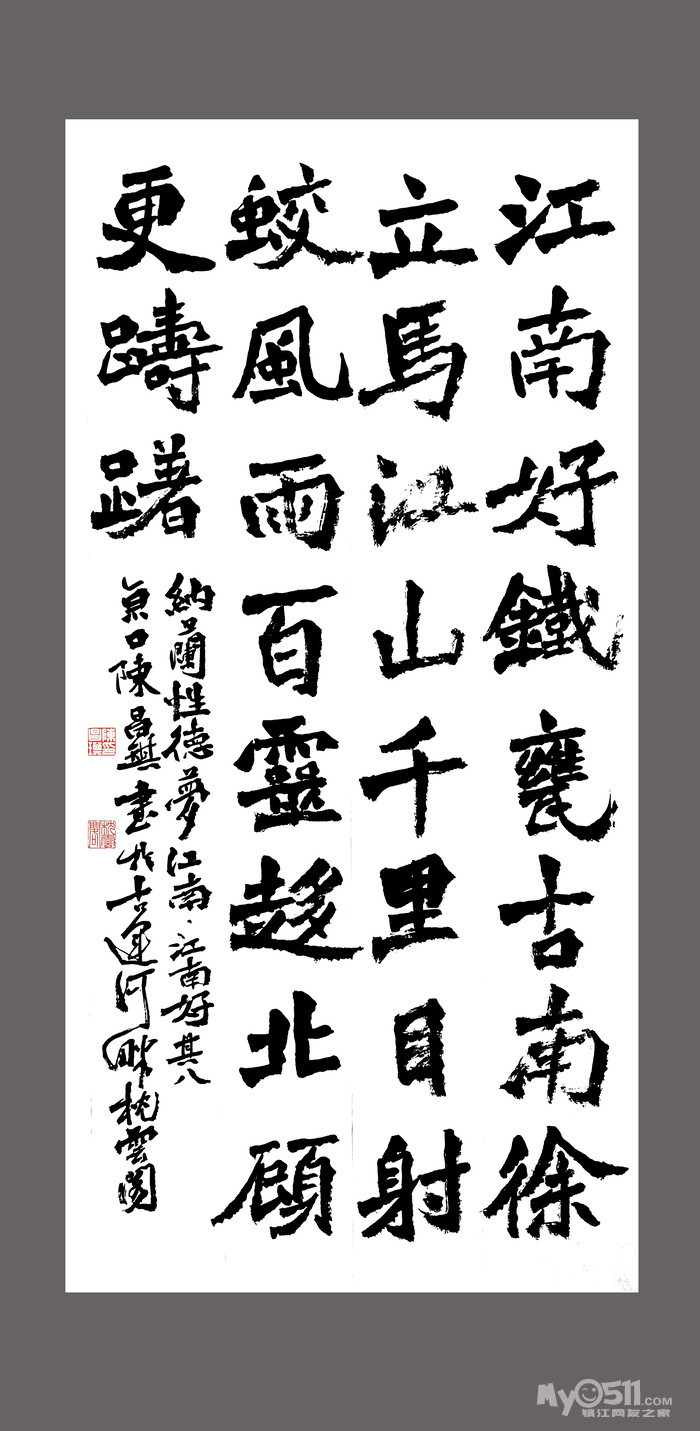 江南好鐵甕古南徐
立馬江山千里目射
蛟風雨百靈趍北顧
更躊躇
納蘭性德夢江南、江南好其八
口陳昌書於古運河畔枕雲閣
My0511.COM
镇江网友之家